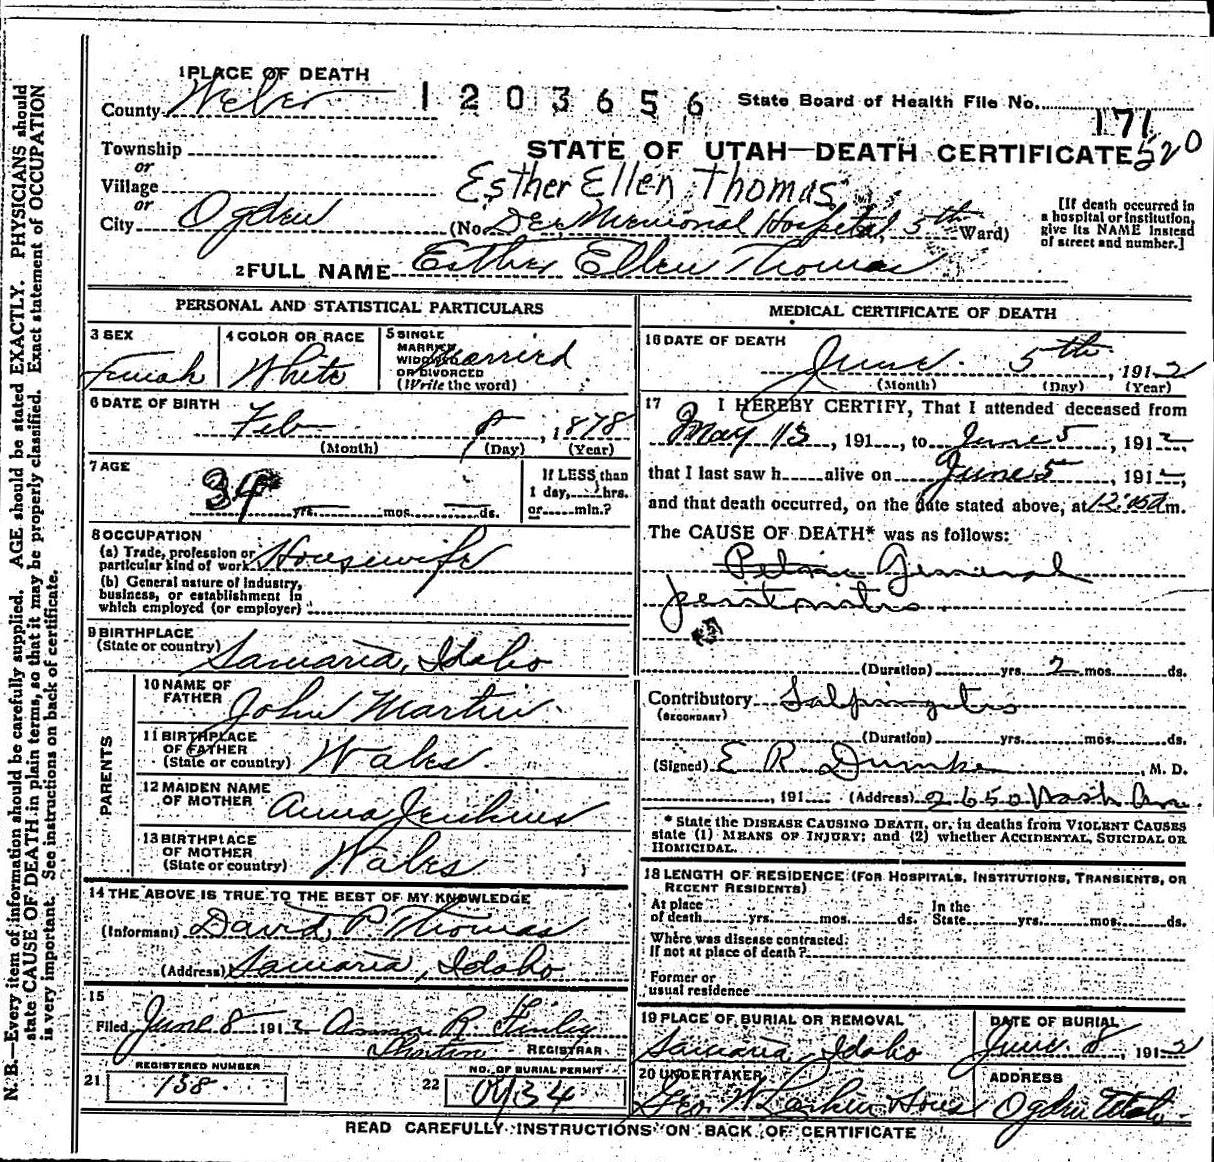 1 PLACE OF DEATH
County Weber
1203656
State Board of Health File No. 171
520
Township
or
Village
or
City Ogden
STATE OF UTAH—DEATH CERTIFICATE
Esther Ellen Thomas
(No. Dee Memorial Hospital, 5th Ward)
[If death occurred in
a hospital or institution,
give its NAME instead
of street and number.]
2 FULL NAME Esther Ellen Thomas
PERSONAL AND STATISTICAL PARTICULARS
3 SEX
Female
4 COLOR OR RACE
White
5 SINGLE
MARRIED
WIDOWED
OR DIVORCED
(Write the word)
Married
6 DATE OF BIRTH
Feb 8, 1878
(Month) (Day) (Year)
7 AGE
34 yrs. — mos. — ds.
If LESS than
1 day, hrs.
or min.?
8 OCCUPATION
(a) Trade, profession or
particular kind of work Housewife
(b) General nature of industry,
business, or establishment in
which employed (or employer)
9 BIRTHPLACE
(State or country) Samaria, Idaho
PARENTS
10 NAME OF
FATHER John Martin
11 BIRTHPLACE
OF FATHER
(State or country) Wales.
12 MAIDEN NAME
OF MOTHER Anna Jenkins
13 BIRTHPLACE
OF MOTHER
(State or country) Wales
14 THE ABOVE IS TRUE TO THE BEST OF MY KNOWLEDGE
(Informant) David P Thomas
(Address) Samaria, Idaho
15
Filed June 8 1912
REGISTRAR
REGISTERED NUMBER
21 138
NO. OF BURIAL PERMIT
22 0434
MEDICAL CERTIFICATE OF DEATH
16 DATE OF DEATH
June 5th, 1912
(Month) (Day) (Year)
17 I HEREBY CERTIFY, That I attended deceased from
May 13, 191, to June 5, 1912
that I last saw h alive on June 5, 1912,
and that death occurred, on the date stated above, at 12:05 a m.
The CAUSE OF DEATH* was as follows:
Pelvic General
peritonitis.
(Duration) yrs. 2 mos. ds.
Contributory Salpingitis
(SECONDARY)
(Duration) yrs. mos. ds.
(Signed) E R Dumke, M. D.
, 191 (Address) 2650 Wash Ave.
* State the DISEASE CAUSING DEATH, or, in deaths from VIOLENT CAUSES
state (1) MEANS OF INJURY; and (2) whether ACCIDENTAL, SUICIDAL OR
HOMICIDAL.
18 LENGTH OF RESIDENCE (FOR HOSPITALS, INSTITUTIONS, TRANSIENTS, OR
RECENT RESIDENTS)
At place
of death yrs. mos. ds.
In the
State yrs. mos. ds.
Where was disease contracted.
If not at place of death?
Former or
usual residence
19 PLACE OF BURIAL OR REMOVAL
Samaria, Idaho
DATE OF BURIAL
June 8, 1912
20 UNDERTAKER
Geo W Larkin & Sons
ADDRESS
Ogden Utah.
READ CAREFULLY INSTRUCTIONS ON BACK OF CERTIFICATE
N. B.—Every item of information should be carefully supplied. AGE should be stated EXACTLY. PHYSICIANS should
state CAUSE OF DEATH in plain terms, so that it may be properly classified. Exact statement of OCCUPATION
is very important. See instructions on back of certificate.